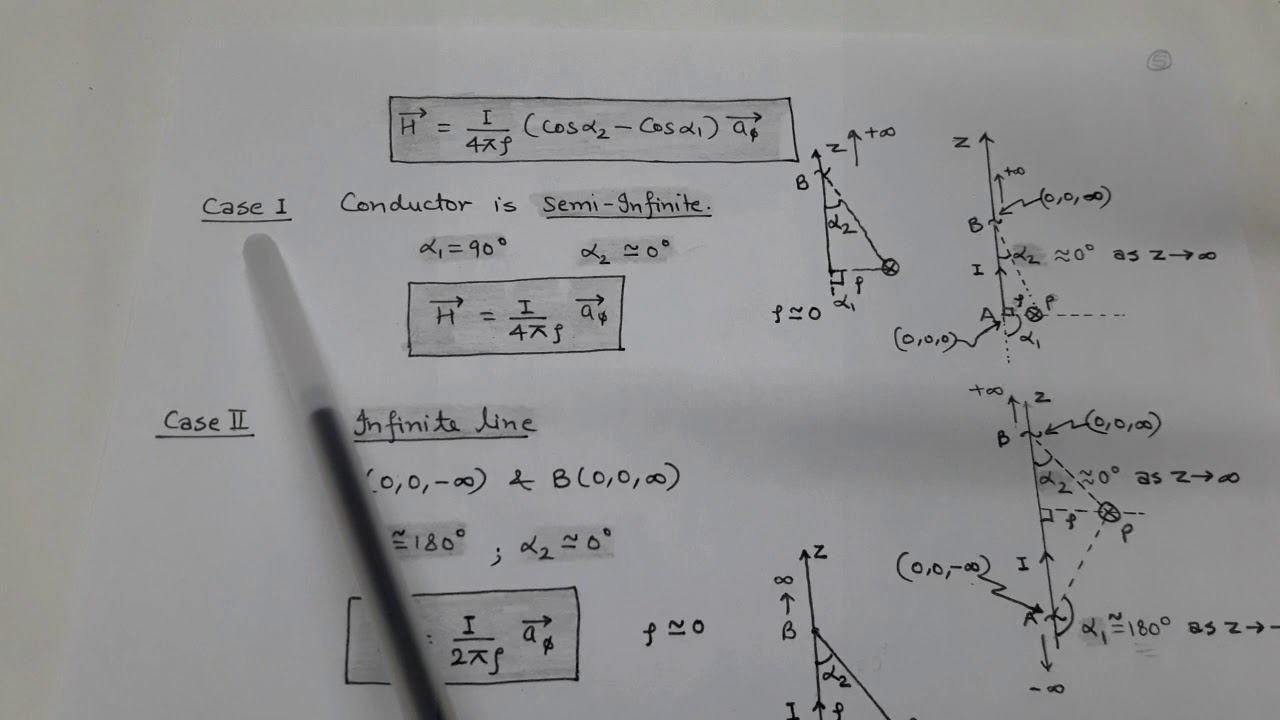 5
H⃗ = I/4πρ (Cosα₂ − Cosα₁) a⃗ᵩ
Case I Conductor is Semi-Infinite.
α₁ = 90° α₂ ≃ 0°
H⃗ = I/4πρ a⃗ᵩ
Z +∞
B
α₂
ρ
α₁
ρ ≃ 0
Z
+∞
(0,0,∞)
B
α₂ ≈ 0° as z→∞
I
A ρ P
(0,0,0) α₁
Case II Infinite line
(0,0,-∞) & B(0,0,∞)
≅ 180° ; α₂ ≃ 0°
I/2πρ a⃗ᵩ ρ ≃ 0
+∞ Z
B (0,0,∞)
α₂ ≈ 0° as z→∞
ρ P
I
(0,0,-∞)
A α₁ ≅ 180° as z→-
-∞
Z
∞
B
α₂
I ρ